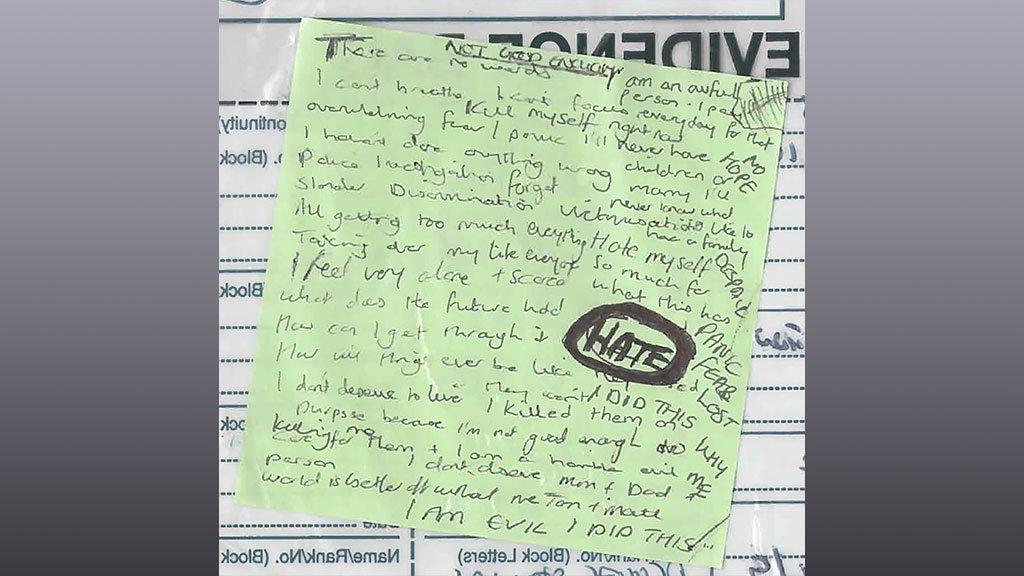 EVIDENCE
NOT GOOD ENOUGH
There are no words
I am an awful person. I pay
every day for that
I can't breathe I can't focus
Kill myself right now
overwhelming fear / panic I'll never have
NO HOPE
children or marry I'll
never know what
I haven't done anything wrong
it's like to
have a family
Police Investigation forget
Slander Discrimination Victimisation
All getting too much everything Hate myself
DESPAIR
so much for
Taking over my life everyone
what this has
I feel very alone + scared
PANIC
what does the future hold
FEAR
HATE
How can I get through it
LOST
How will things ever be like
They won't I DID THIS
WHY
I don't deserve to live I killed them on
ME
purpose because I'm not good enough
Killing me
care for them + I am a horrible evil
person I don't deserve mum + Dad
world is better off without me
I AM EVIL I DID THIS
ontinuity)
No. (Block
No. (Block
Block
Block
Date
Name/Rank/No. (Block Letters)
ank/No. (Block